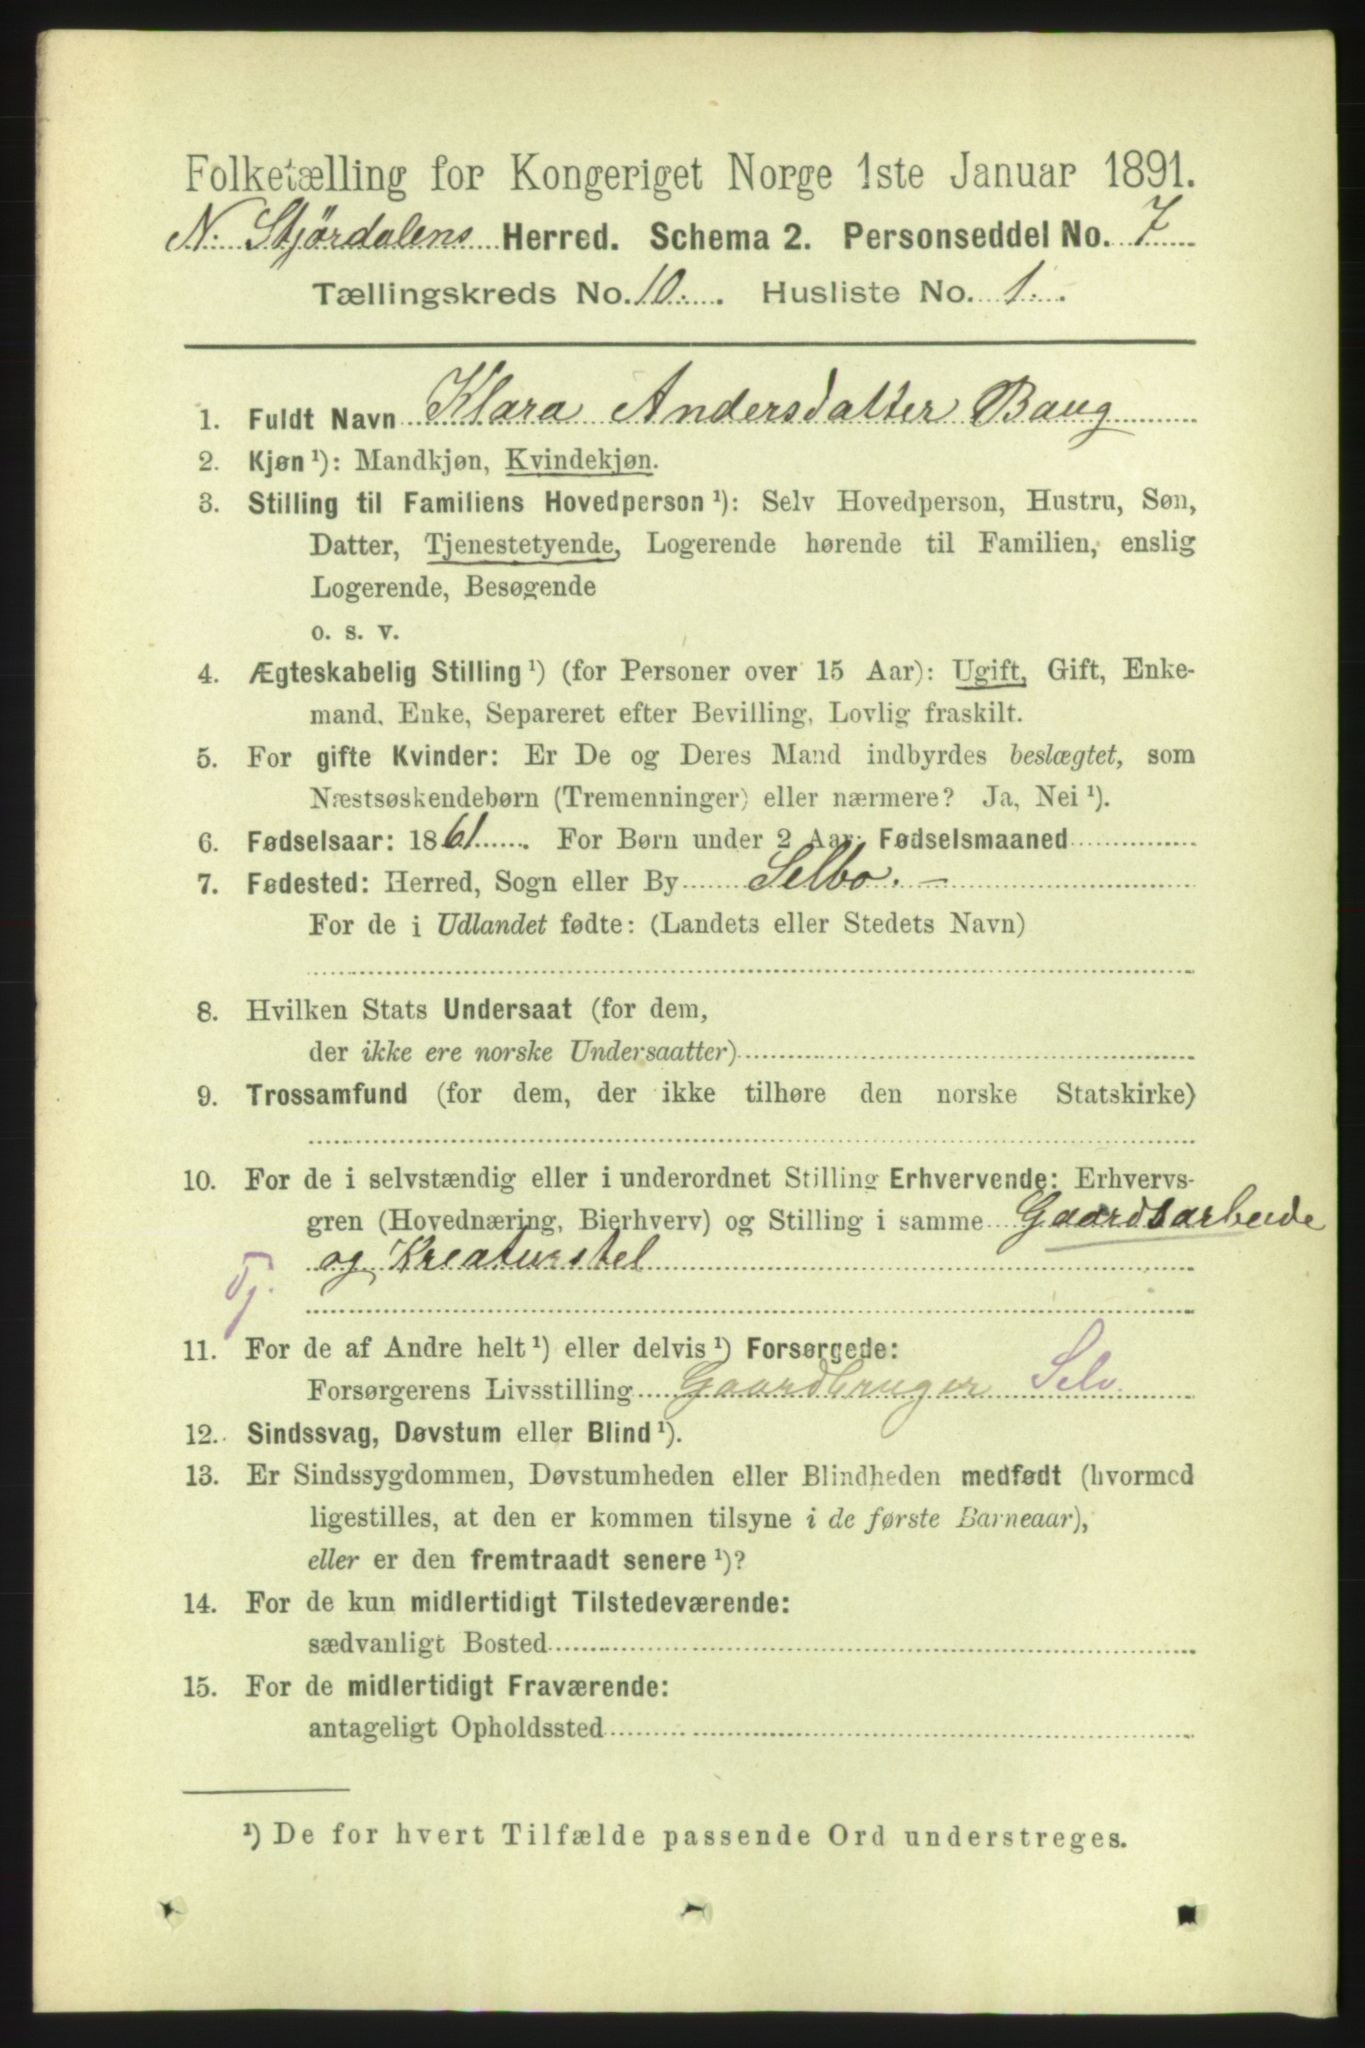 Folketælling for Kongeriget Norge 1ste Januar 1891.
N. Stjördalens Herred. Schema 2. Personseddel No. 7
Tællingskreds No. 10. Husliste No. 1.
1. Fuldt Navn Klara Andersdatter Baug
2. Kjøn ¹): Mandkjøn, Kvindekjøn.
3. Stilling til Familiens Hovedperson ¹): Selv Hovedperson, Hustru, Søn,
Datter, Tjenestetyende, Logerende hørende til Familien, enslig
Logerende, Besøgende
o. s. v.
4. Ægteskabelig Stilling ¹) (for Personer over 15 Aar): Ugift, Gift, Enke-
mand, Enke, Separeret efter Bevilling, Lovlig fraskilt.
5. For gifte Kvinder: Er De og Deres Mand indbyrdes beslægtet, som
Næstsøskendebørn (Tremenninger) eller nærmere? Ja, Nei ¹).
6. Fødselsaar: 1861. For Børn under 2 Aar: Fødselsmaaned
7. Fødested: Herred, Sogn eller By Selbo. -
For de i Udlandet fødte: (Landets eller Stedets Navn)
8. Hvilken Stats Undersaat (for dem,
der ikke ere norske Undersaatter)
9. Trossamfund (for dem, der ikke tilhøre den norske Statskirke)
10. For de i selvstændig eller i underordnet Stilling Erhvervende: Erhvervs-
gren (Hovednæring, Bierhverv) og Stilling i samme Gaardsarbeide
og Kreaturstel
Tj.
11. For de af Andre helt ¹) eller delvis ¹) Forsørgede:
Forsørgerens Livsstilling Gaardbruger Selv
12. Sindssvag, Døvstum eller Blind ¹).
13. Er Sindssygdommen, Døvstumheden eller Blindheden medfødt (hvormed
ligestilles, at den er kommen tilsyne i de første Barneaar),
eller er den fremtraadt senere ¹)?
14. For de kun midlertidigt Tilstedeværende:
sædvanligt Bosted
15. For de midlertidigt Fraværende:
antageligt Opholdssted
¹) De for hvert Tilfælde passende Ord understreges.